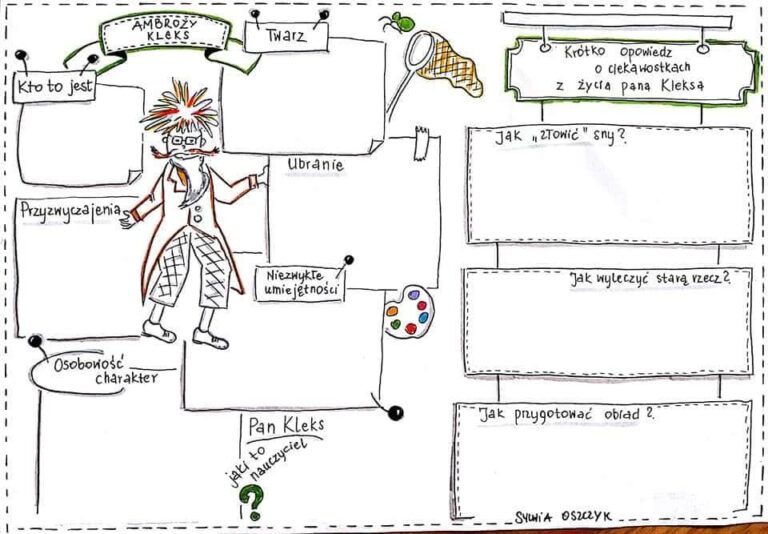 AMBROŻY
KLEKS
Twarz
Kto to jest
Ubranie
Przyzwyczajenia
Niezwykłe
umiejętności
Osobowość
charakter
Pan Kleks
jaki to
nauczyciel
?
Krótko opowiedz
o ciekawostkach
z życia pana Kleksa
Jak „złowić” sny?
Jak wyleczyć starą rzecz?
Jak przygotować obiad?
SYLWIA OSZCZYK